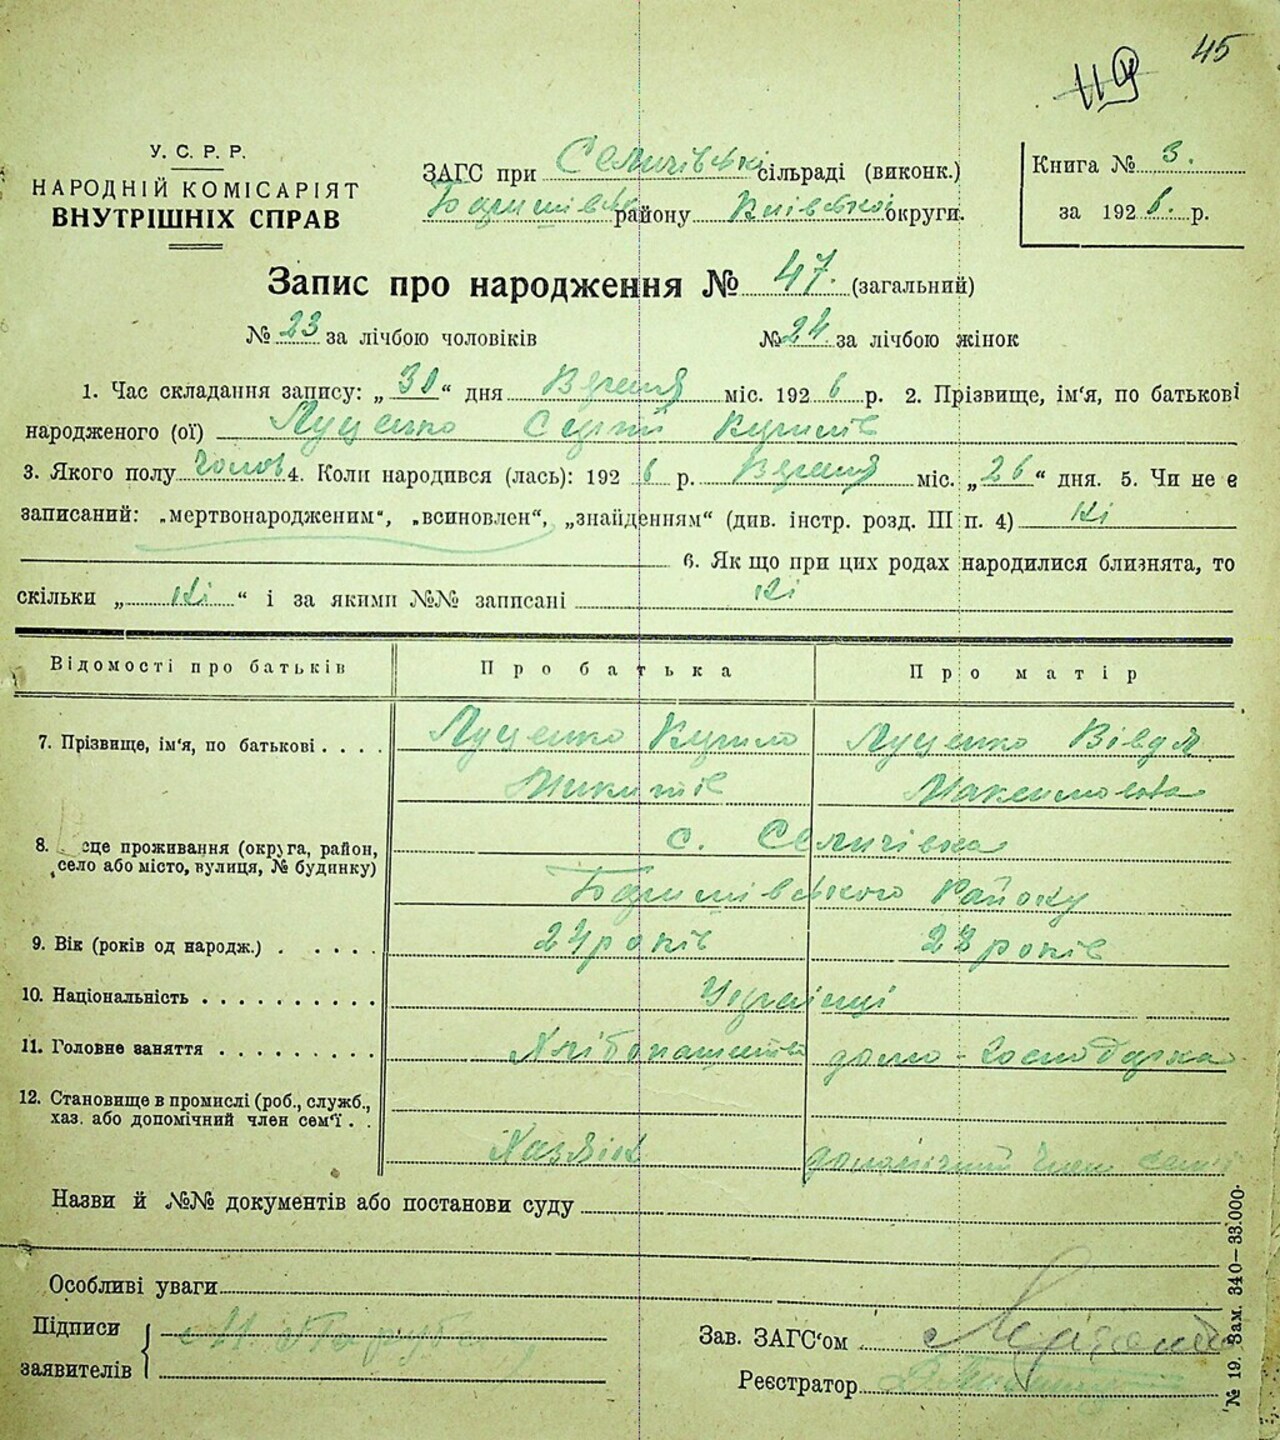 45
У. С. Р. Р.
НАРОДНІЙ КОМІСАРІЯТ
ВНУТРІШНІХ СПРАВ
ЗАГС при Селичівські сільраді (виконк.)
Баришівськ району Київської округи.
Книга № 3.
за 1926. р.
Запис про народження № 47. (загальний)
№ 23 за лічбою чоловіків № 24. за лічбою жінок
1. Час складання запису: „30“ дня Вересня міс. 1926 р. 2. Прізвище, ім'я, по батькові
народженого (ої) Луценко Сергій Кирилів
3. Якого полу Чолов 4. Коли народився (лась): 1926 р. Вересня міс. „26“ дня. 5. Чи не є
записаний: „мертвонародженим“, „всиновлен“, „знайденням“ (див. інстр. розд. III п. 4) Ні
6. Як що при цих родах народилися близнята, то
скільки „Ні“ і за якими №№ записані Ні
Відомості про батьків Про батька Про матір
7. Прізвище, ім‘я, по батькові . . . . Луценко Кирило Луценко Вівдя
Микитів Максимовна
8. сце проживання (округа, район, с. Селичівка
село або місто, вулиця, № будинку)
Баришівського Району
9. Вік (років од народж.) . . . . . 24 років 23 років
10. Національність . . . . . . . . . . Українці
11. Головне заняття . . . . . . . . . Хлібопашитв домо-господарка
12. Становище в промислі (роб., служб.,
хаз. або допомічний член сем‘ї . .
Хазяїн допомічний член семії
Назви й №№ документів або постанови суду
Особливі уваги
Підписи
заявителів
Зав. ЗАГС‘ом
Реєстратор
№ 19. Зам. 340—33.000.